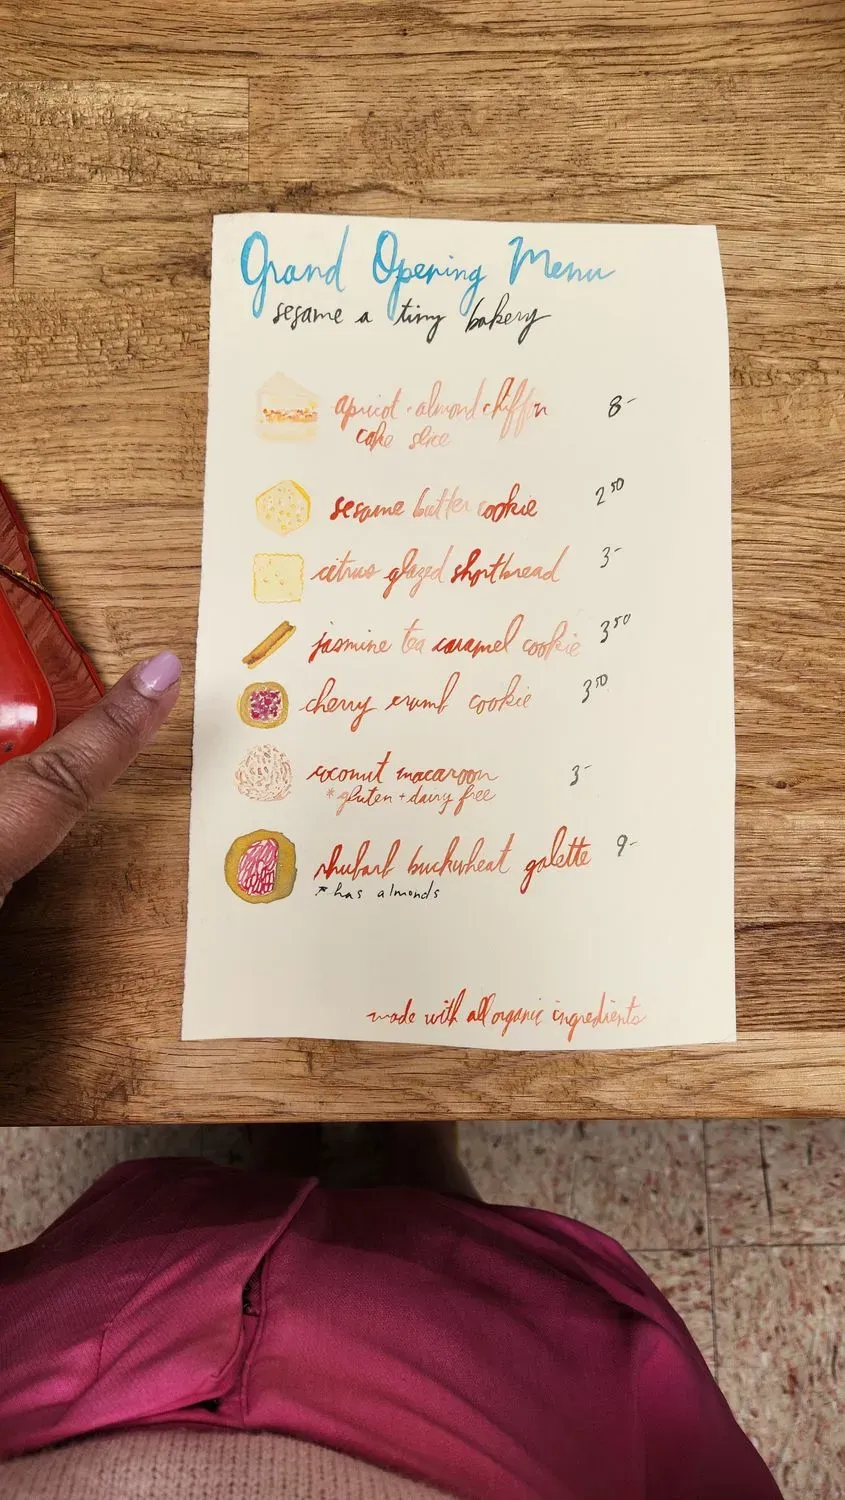 Grand Opening Menu
sesame a tiny bakery
apricot-almond chiffon 8-
cake slice
sesame butter cookie 2 50
citrus glazed shortbread 3-
jasmine tea caramel cookie 3 50
cherry crumb cookie 3 50
coconut macaroon 3-
*gluten + dairy free
rhubarb buckwheat galette 9-
↗ has almonds
made with all organic ingredients